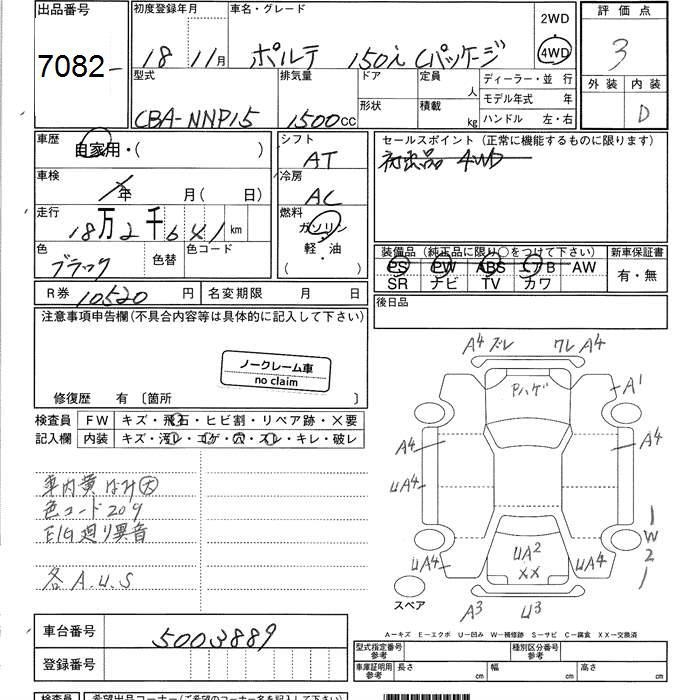 出品番号
7082
初度登録年月
18 11月
車名・グレード
ポルテ 150i Cパッケージ
2WD
4WD
評価点
3
外装 内装
D
型式
CBA-NNP15
排気量
1500cc
ドア
形状
定員 人
積載 kg
ディーラー・並 行
モデル年式 年
ハンドル 左・右
車歴
自家用・( )
車検
年 月( 日)
走行
18万2千641km
色
ブラック
色替
色コード
R券 10520円
名変期限 月 日
シフト
AT
冷房
AC
燃料
ガソリン
軽・油
( ・ )
セールスポイント(正常に機能するものに限ります)
4WD
装備品(純正品に限り○をつけて下さい)
PS PW ABS エアB AW
SR ナビ TV カワ
新車保証書
有・無
後日品
注意事項申告欄(不具合内容等は具体的に記入して下さい)
ノークレーム車
no claim
修復歴 有 〔箇所 〕
検査員 FW キズ・飛石・ヒビ割・リペア跡・×要
記入欄 内装 キズ・汚レ・コゲ・穴・スレ・キレ・破レ
色コード209
E/G廻り異音
各A.U.S
A4 ズレ
ワレ A4
Pハゲ
A1
A4
A4
UA4
UA2
XX
UA4
UA4
W2
A3
U3
スペア
A―キズ E―エクボ U―凹み W―補修跡 S―サビ C―腐食 XX―交換済
車台番号 5003889
登録番号
型式指定番号
参考
種別区分番号
参考
車庫証明用
参考
長さ cm 幅 cm 高さ cm
検査員
希望出品コーナー(ご希望のコーナー名を記入して下さい)